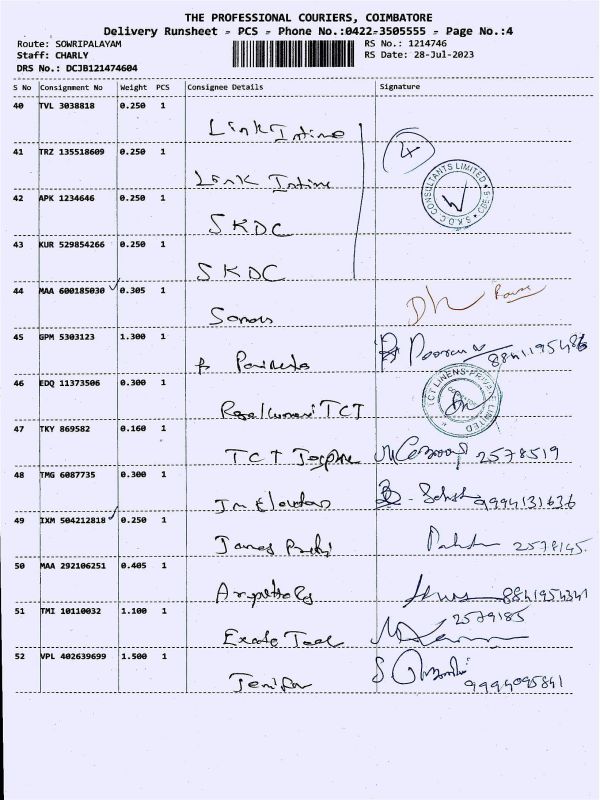 THE PROFESSIONAL COURIERS, COIMBATORE
Delivery Runsheet - PCS - Phone No.:0422-3505555 - Page No.:4
Route: SOWRIPALAYAM
RS No.: 1214746
Staff: CHARLY
RS Date: 28-Jul-2023
DRS No.: DCJB121474604
S No Consignment No Weight PCS Consignee Details Signature
40 TVL 3038818 0.250 1
Link Intime
4
41 TRZ 135518609 0.250 1
Link Intime
S.K.D.C CONSULTANTS LIMITED
42 APK 1234646 0.250 1
SKDC
43 KUR 529854266 0.250 1
SKDC
44 MAA 600185030 0.305 1
45 GPM 5303123 1.300 1
8841195486
46 EDQ 11373506 0.300 1
TCT
TCT LINENS PRIVATE LIMITED
47 TKY 869582 0.160 1
TCT
2578519
48 TMG 6087735 0.300 1
9994131636
49 IXM 504212818 0.250 1
James
2578145.
50 MAA 292106251 0.405 1
8841954341
51 TMI 10110032 1.100 1
2579185
52 VPL 402639699 1.500 1
Jenifer
9994095841